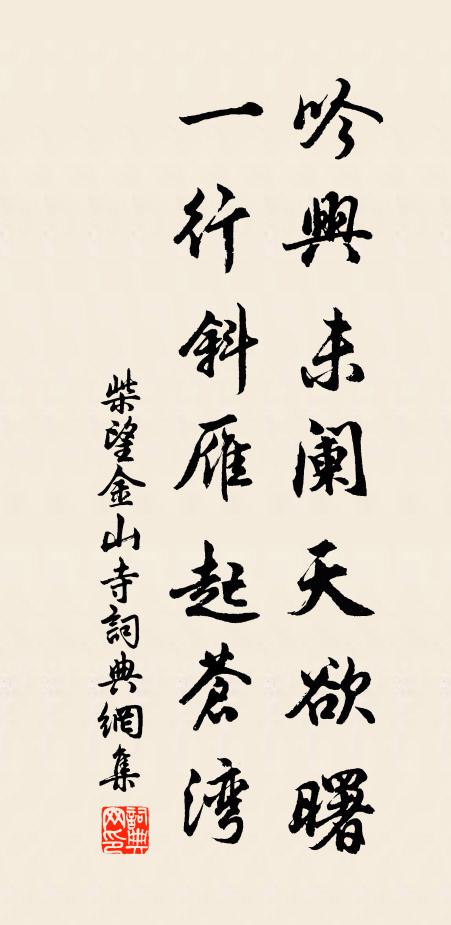 吟興未阑天欲曙
一行斜雁起蒼湾
柴望金山寺詞典網集
詞典网印